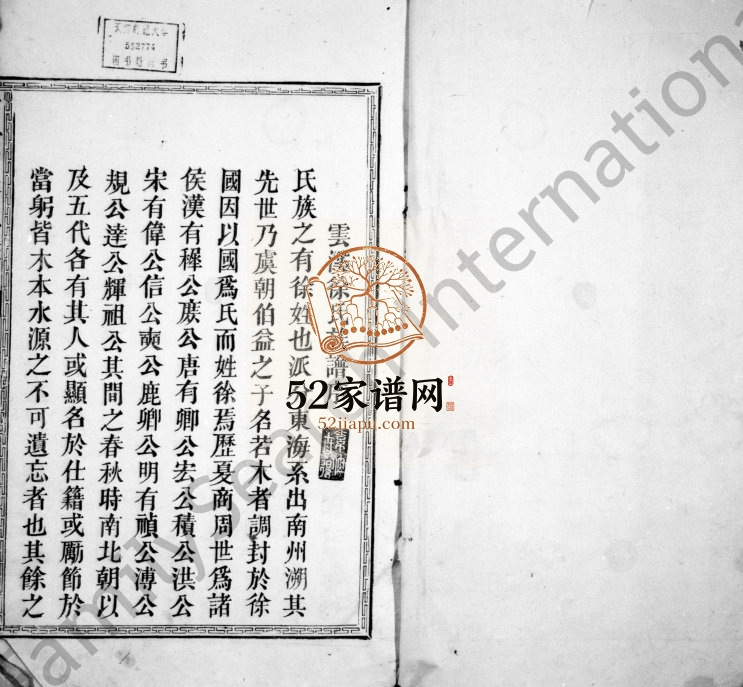 552774
雲溪徐氏族譜序
氏族之有徐姓也派 東海系出南州溯其
先世乃虞朝伯益之子名若木者調封於徐
國因以國爲氏而姓徐焉歷夏商周世爲諸
侯漢有穉公庻公唐有卿公宏公積公洪公
宋有偉公信公奭公鹿卿公明有禎公溥公
規公達公輝祖公其間之春秋時南北朝以
及五代各有其人或顯名於仕籍或勵節於
當躬皆木本水源之不可遺忘者也其餘之
52家谱网
52jiapu.com
FamilySearch International